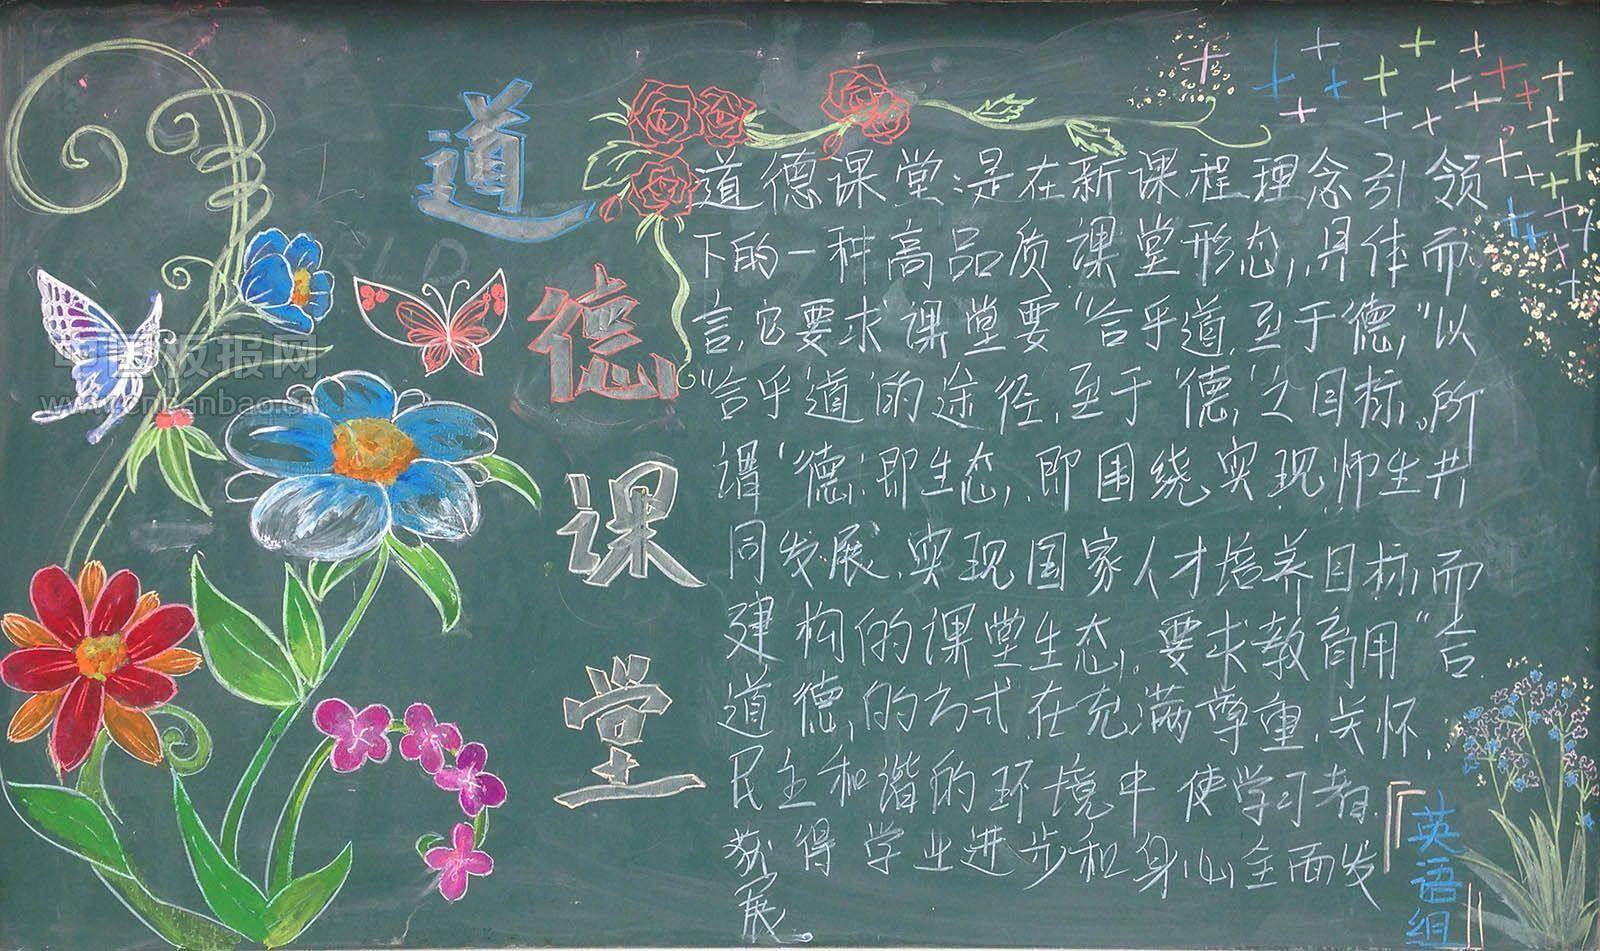 道德课堂
道德课堂:是在新课程理念引领
下的一种高品质课堂形态,具体而
言,它要求课堂要“合乎道,至于德,”以
“合乎道”的途径,至于“德”之目标。所
谓“德”即生态,即围绕实现师生共
同发展、实现国家人才培养目标,而
建构的课堂生态,要求教育用“合
道德”的方式,在充满尊重、关怀、
民主和谐的环境中使学习者
获得学业进步和身心全面发
展。
『英语组』
中国板报网
www.cnbanbao.cn